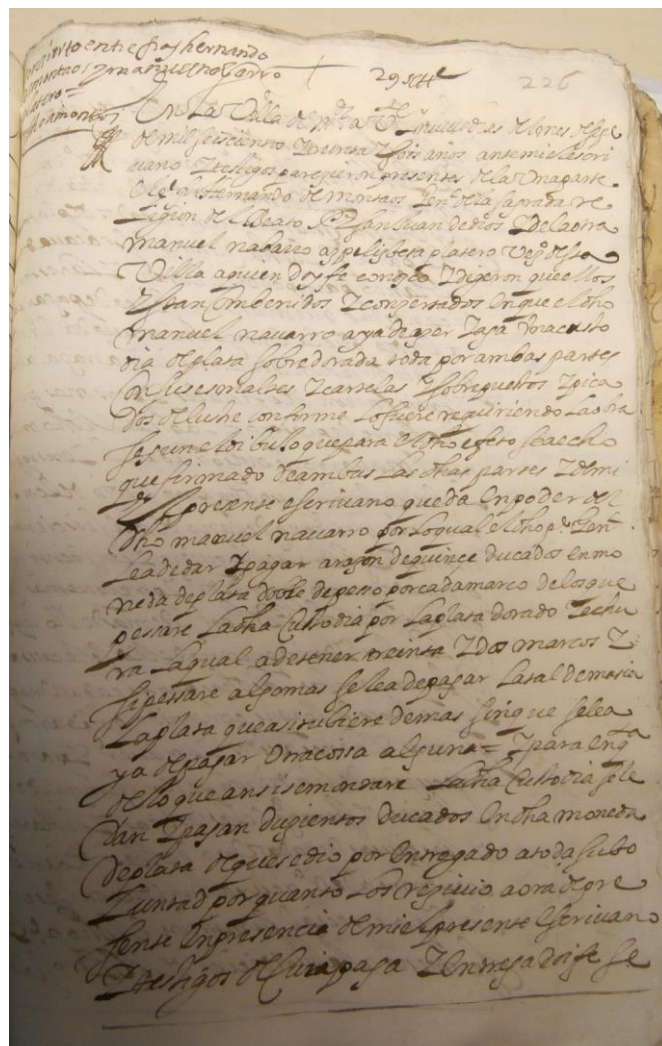 conzierto entre fray hernando
de montaos y manuel navarro
platero =
29 sett^e
226
En La Villa de m^d a V^te y nueve dias del mes de sep^e
de mil seiscientos y treinta y seis años ante mi el escri
uano y testigos parezieron presentes de la una parte
el p^e fr hernando de montaos gen^l de la sagrada re
ligion del Beato P^e san Juan de dios y de la otra
manuel nabarro platero Vez^o desta
Villa a quien doy fe conozco y dijeron que ellos
estan combenidos y conzertados en que el dho
manuel navarro aya de azer y aga una custo
dia de plata sobredorada toda por ambas partes
con sus esmaltes y cartelas y sobrepuestos y pica
dos de lustre conforme lo fuere requiriendo la obra
segun el dibujo que para el dho efeto sea echo
que firmado de ambas las dhas partes y de mi
el presente escrivano queda en poder del
dho manuel navarro por lo qual el dho p^e gen^l
le a de dar y pagar a raçon de quince ducados en mo
neda de plata doble de pesso por cada marco de los que
pessare la dha Custodia por la plata dorado y echu
ra la qual a de tener treinta y dos marcos y
si pessare algo mas se le a de pagar la tal demasia
la plata que asi tubiere demas sin que se le a
ya de pagar otra cossa alguna = y para en q^ta
de lo que ansi se montare la dha Custodia se le
dan y pagan duzientos ducados en dha moneda
de plata de que se dio por entregado a toda su bo
luntad por quanto los rezivio aora de pre
sente en presencia de mi el presente escrivano
y testigos de cuia paga y entrega doi fe se